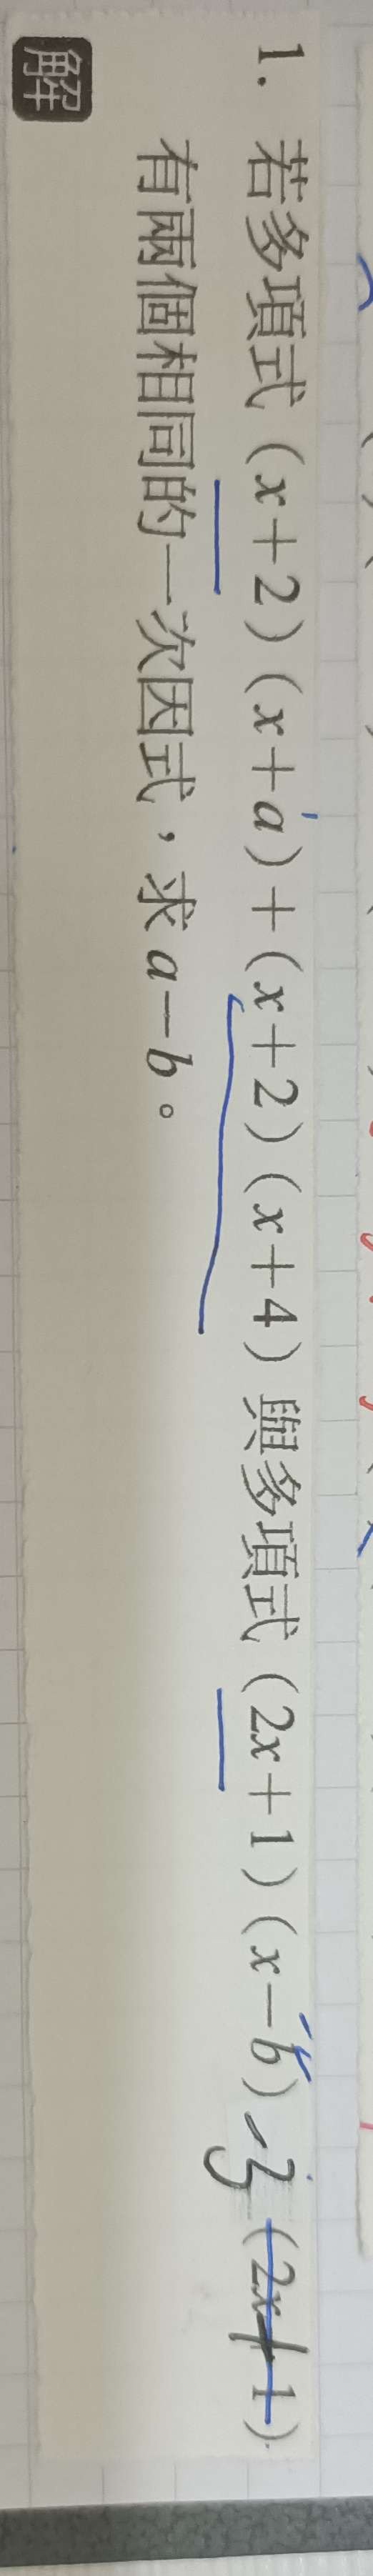 1. 若多項式(x+2)(x+a)+(x+2)(x+4)與多項式(2x+1)(x-b)-3(2x+1)
有兩個相同的一次因式，求a-b。
解